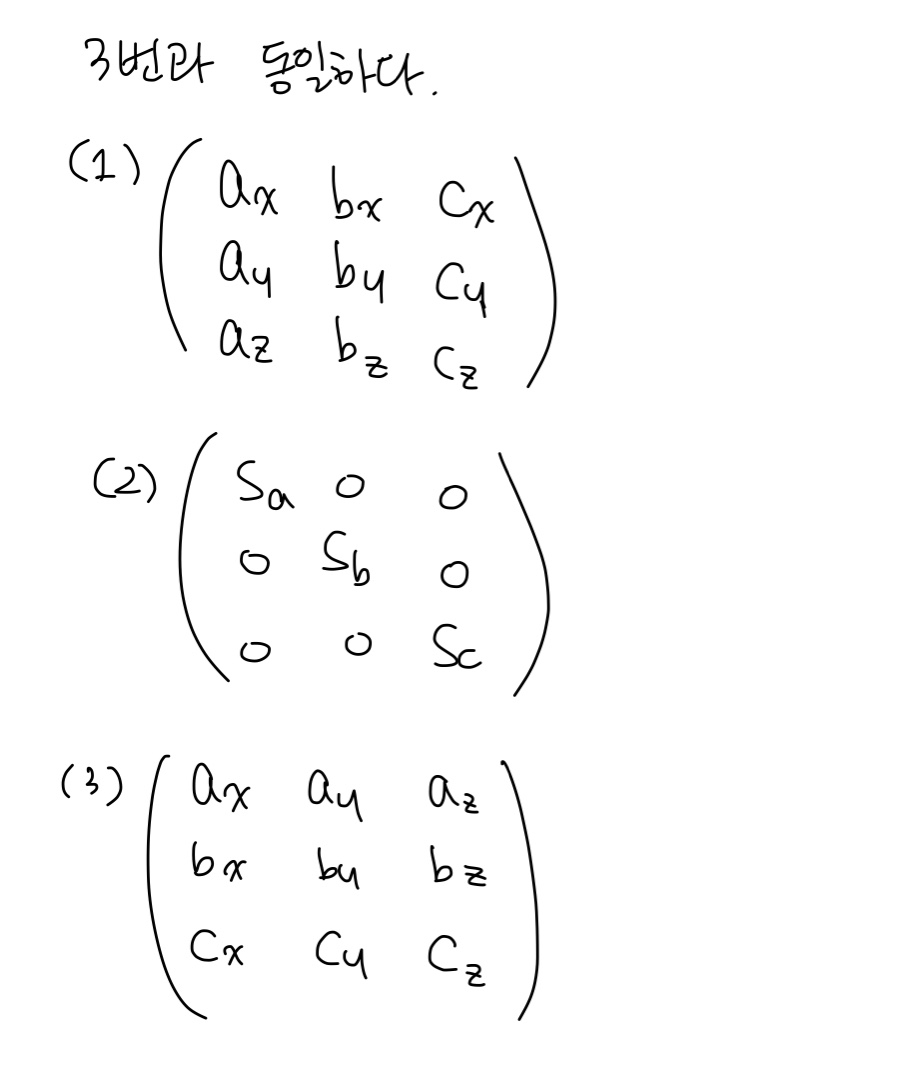 3번과 동일하다.
(1) ax bx cx
ay by cy
az bz cz
(2) Sa 0 0
0 Sb 0
0 0 Sc
(3) ax ay az
bx by bz
cx cy cz